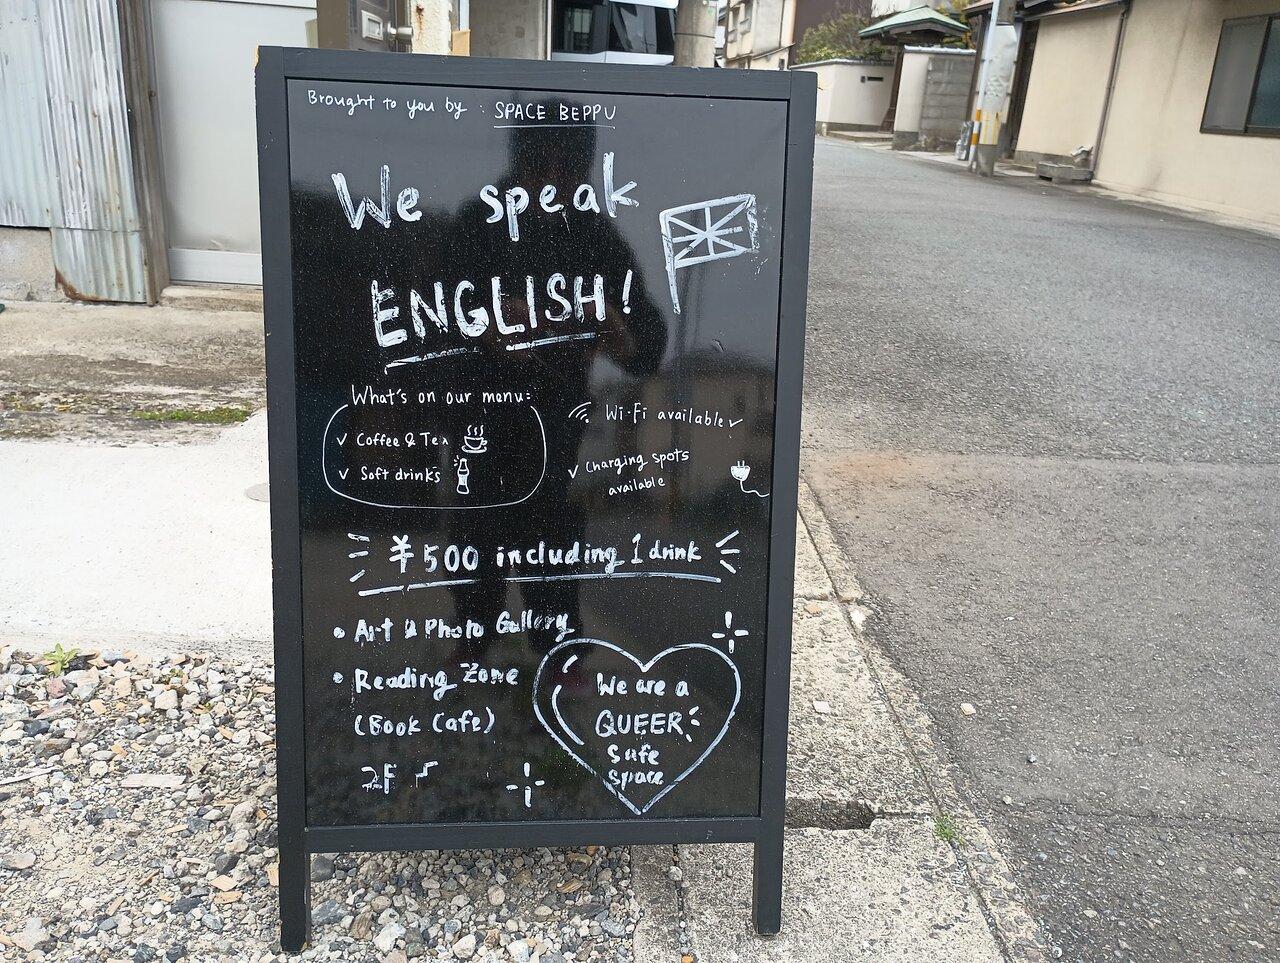 Brought to you by : SPACE BEPPU
We speak
ENGLISH!
What's on our menu:
✓ Coffee & Tea
✓ Soft drinks
Wi-Fi available ✓
✓ Charging spots
available
¥500 including 1 drink
• Art & Photo Gallery
• Reading Zone
(Book Cafe)
2F
We are a
QUEER
Safe
Space